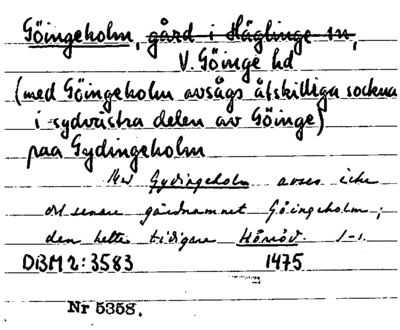 Göingeholm, gård i Häglinge sn,
V. Göinge hd
(med Göingeholm avsågs åtskilliga socknar
i sydvästra delen av Göinge)
paa Gydingeholm
Med Gydingeholm avses icke
det senare gårdnamnet Göingeholm;
den hette tidigare Hovröd. J-s.
DBM 2:3583 1475
Nr 5358.